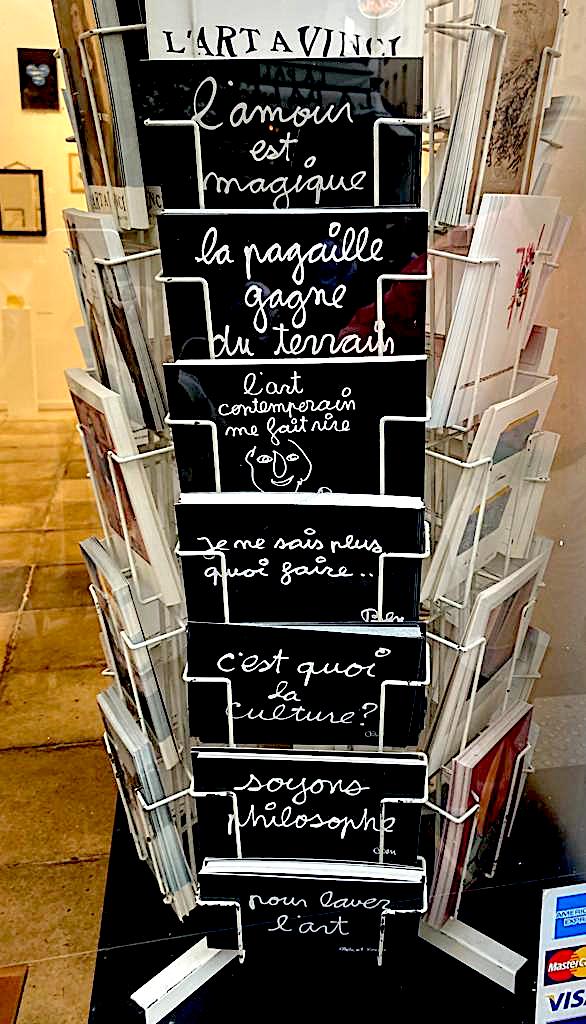 L'ART A VINCI
l'amour
est
magique
la pagaille
gagne
du terrain
l'art
contemporain
me fait rire
Je ne sais plus
quoi faire..
Ben
c'est quoi
la
culture?
Ben
soyons
philosophe
Ben
pour laver
l'art
AMERICAN
EXPRE
MasterCa
VISA